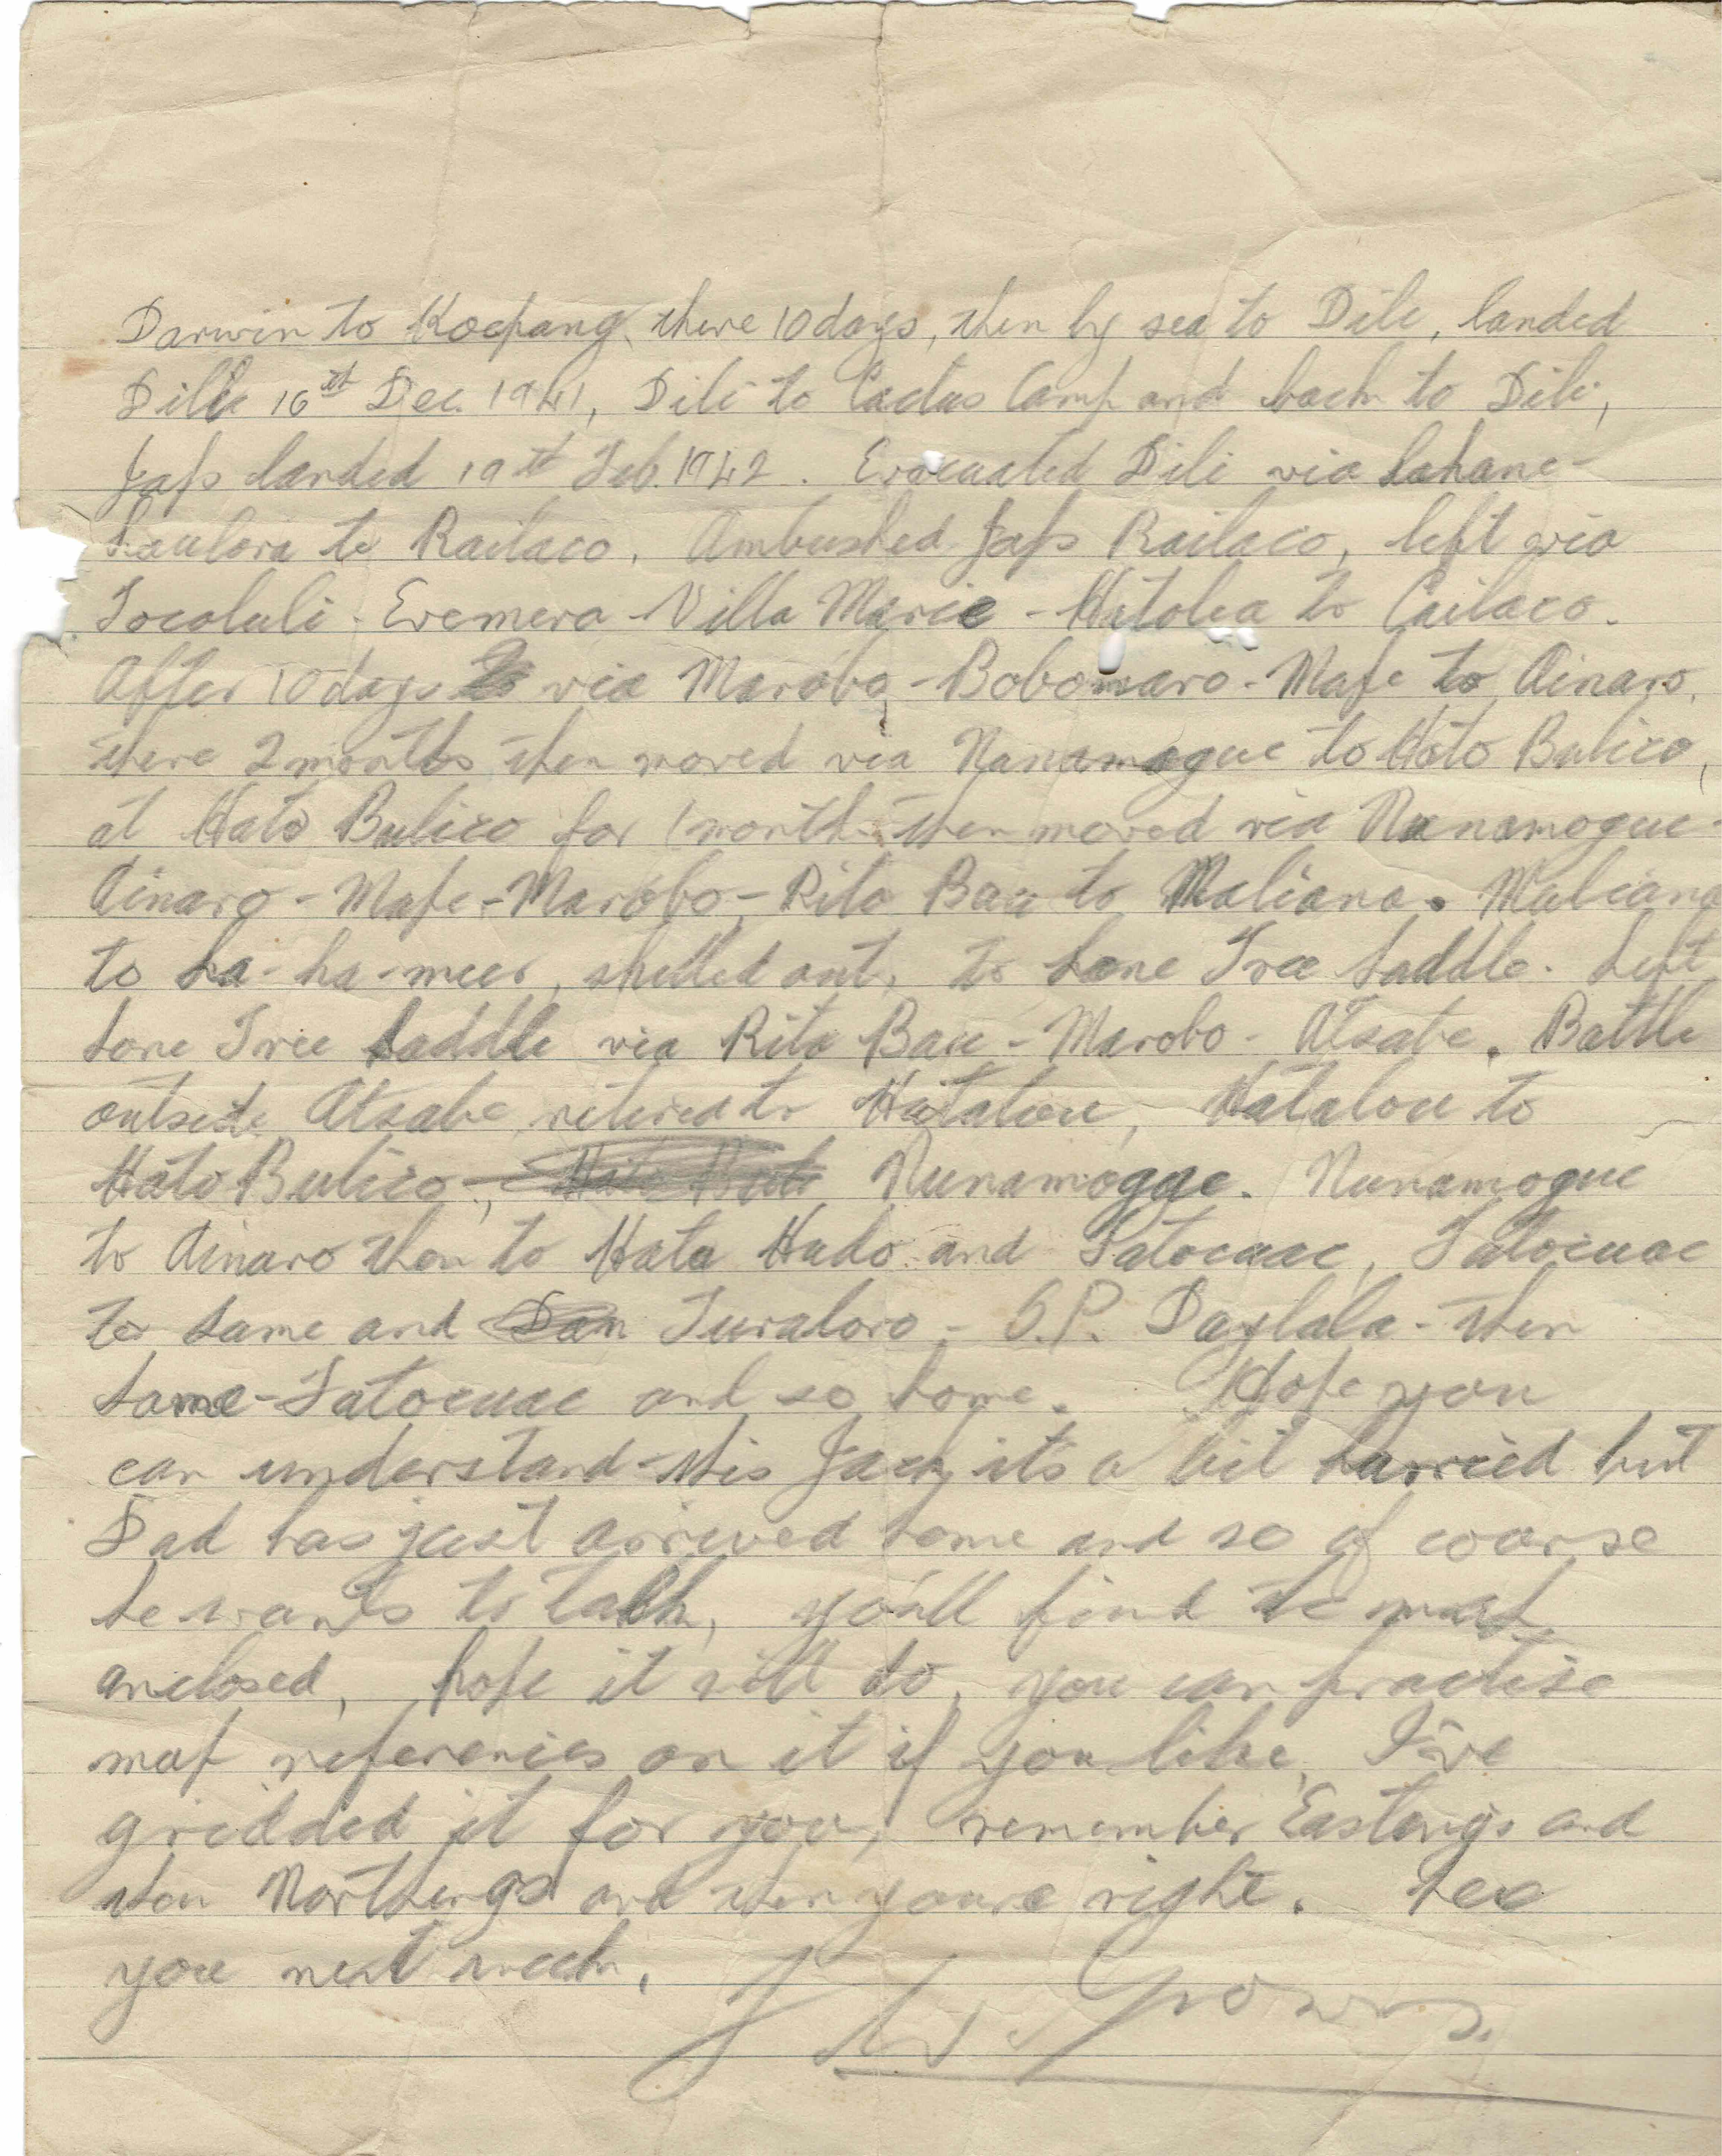 Darwin to Koepang, there 10 days, then by sea to Dili, landed
Dili 16th Dec. 1941, Dili to Cactus Camp and back to Dili,
Japs landed 19th Feb. 1942. Evacuated Dili via Lahane-
Laulora to Railaco. Ambushed Japs Railaco, left via
Tocoluli - Eremera - Villa Maria - Hatolea to Cailaco.
After 10 days via Marobo - Bobonaro - Mape to Ainaro,
there 2 months then moved via Nunamogue to Hato Bulico,
at Hato Bulico for 1 month then moved via Nunamogue-
Ainaro - Mape - Marobo - Rita Bau to Maliana. Maliana
to La-ha-meer, shelled out, to Lone Tree Saddle. Left
Lone Tree Saddle via Rita Bau - Marobo - Atsabe. Battle
outside Atsabe retired to Hatalou, Hatalou to
Hato Bulico, Nunamogue. Nunamogue
to Ainaro then to Hata Hudo and Fatocuac, Fatocuac
to Same and Turaloro - O.P. Daylala - then
Same - Fatocuac and so home. Hope you
can understand this Jack, its a bit hurried but
Dad has just arrived home and so of course
he wants to talk, you'll find the map
enclosed, hope it will do, you can practise
map references on it if you like, I've
gridded it for you, remember Eastings and
then Northings and then youre right. See
you next week,